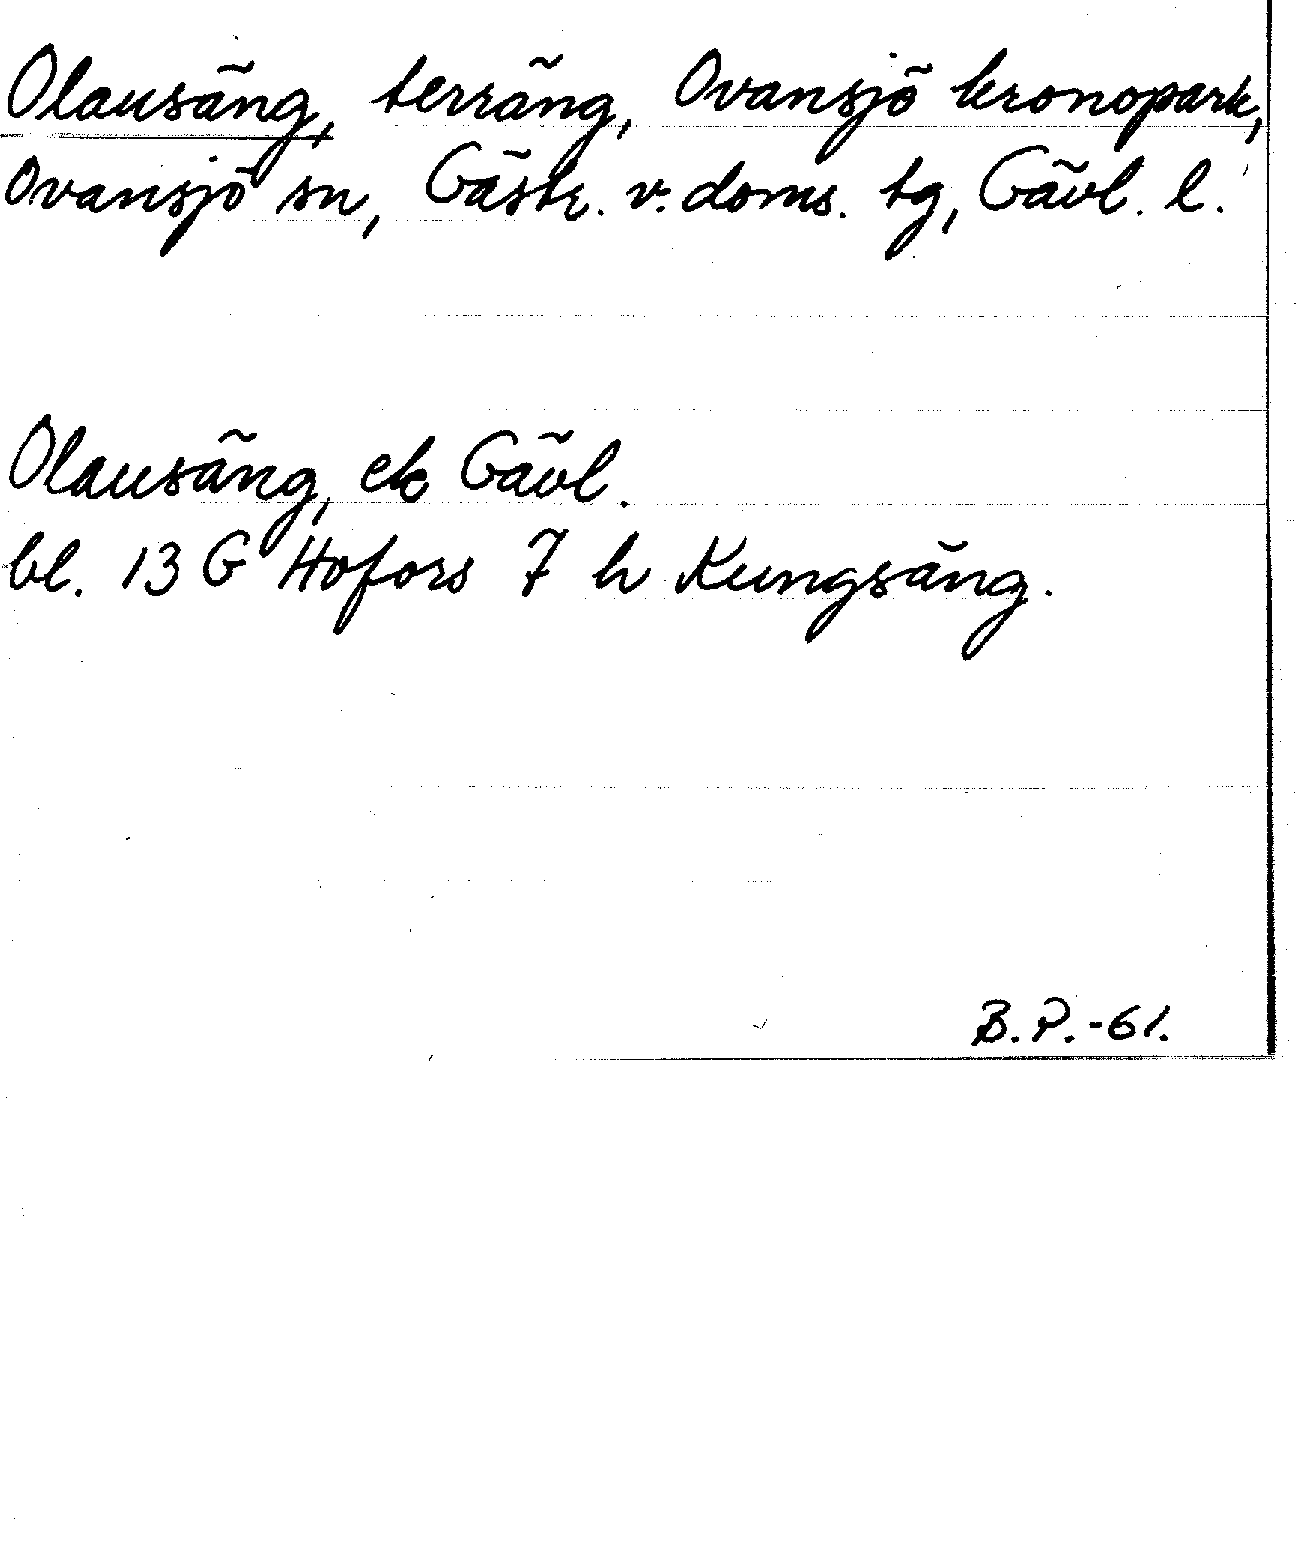 Olausäng, terräng, Ovansjö kronopark,
Ovansjö sn, Gästr. v. doms. tg, Gävl. l.
Olausäng, ek Gävl.
bl. 13 G Hofors 7 h Kungsäng.
B.P.-61.